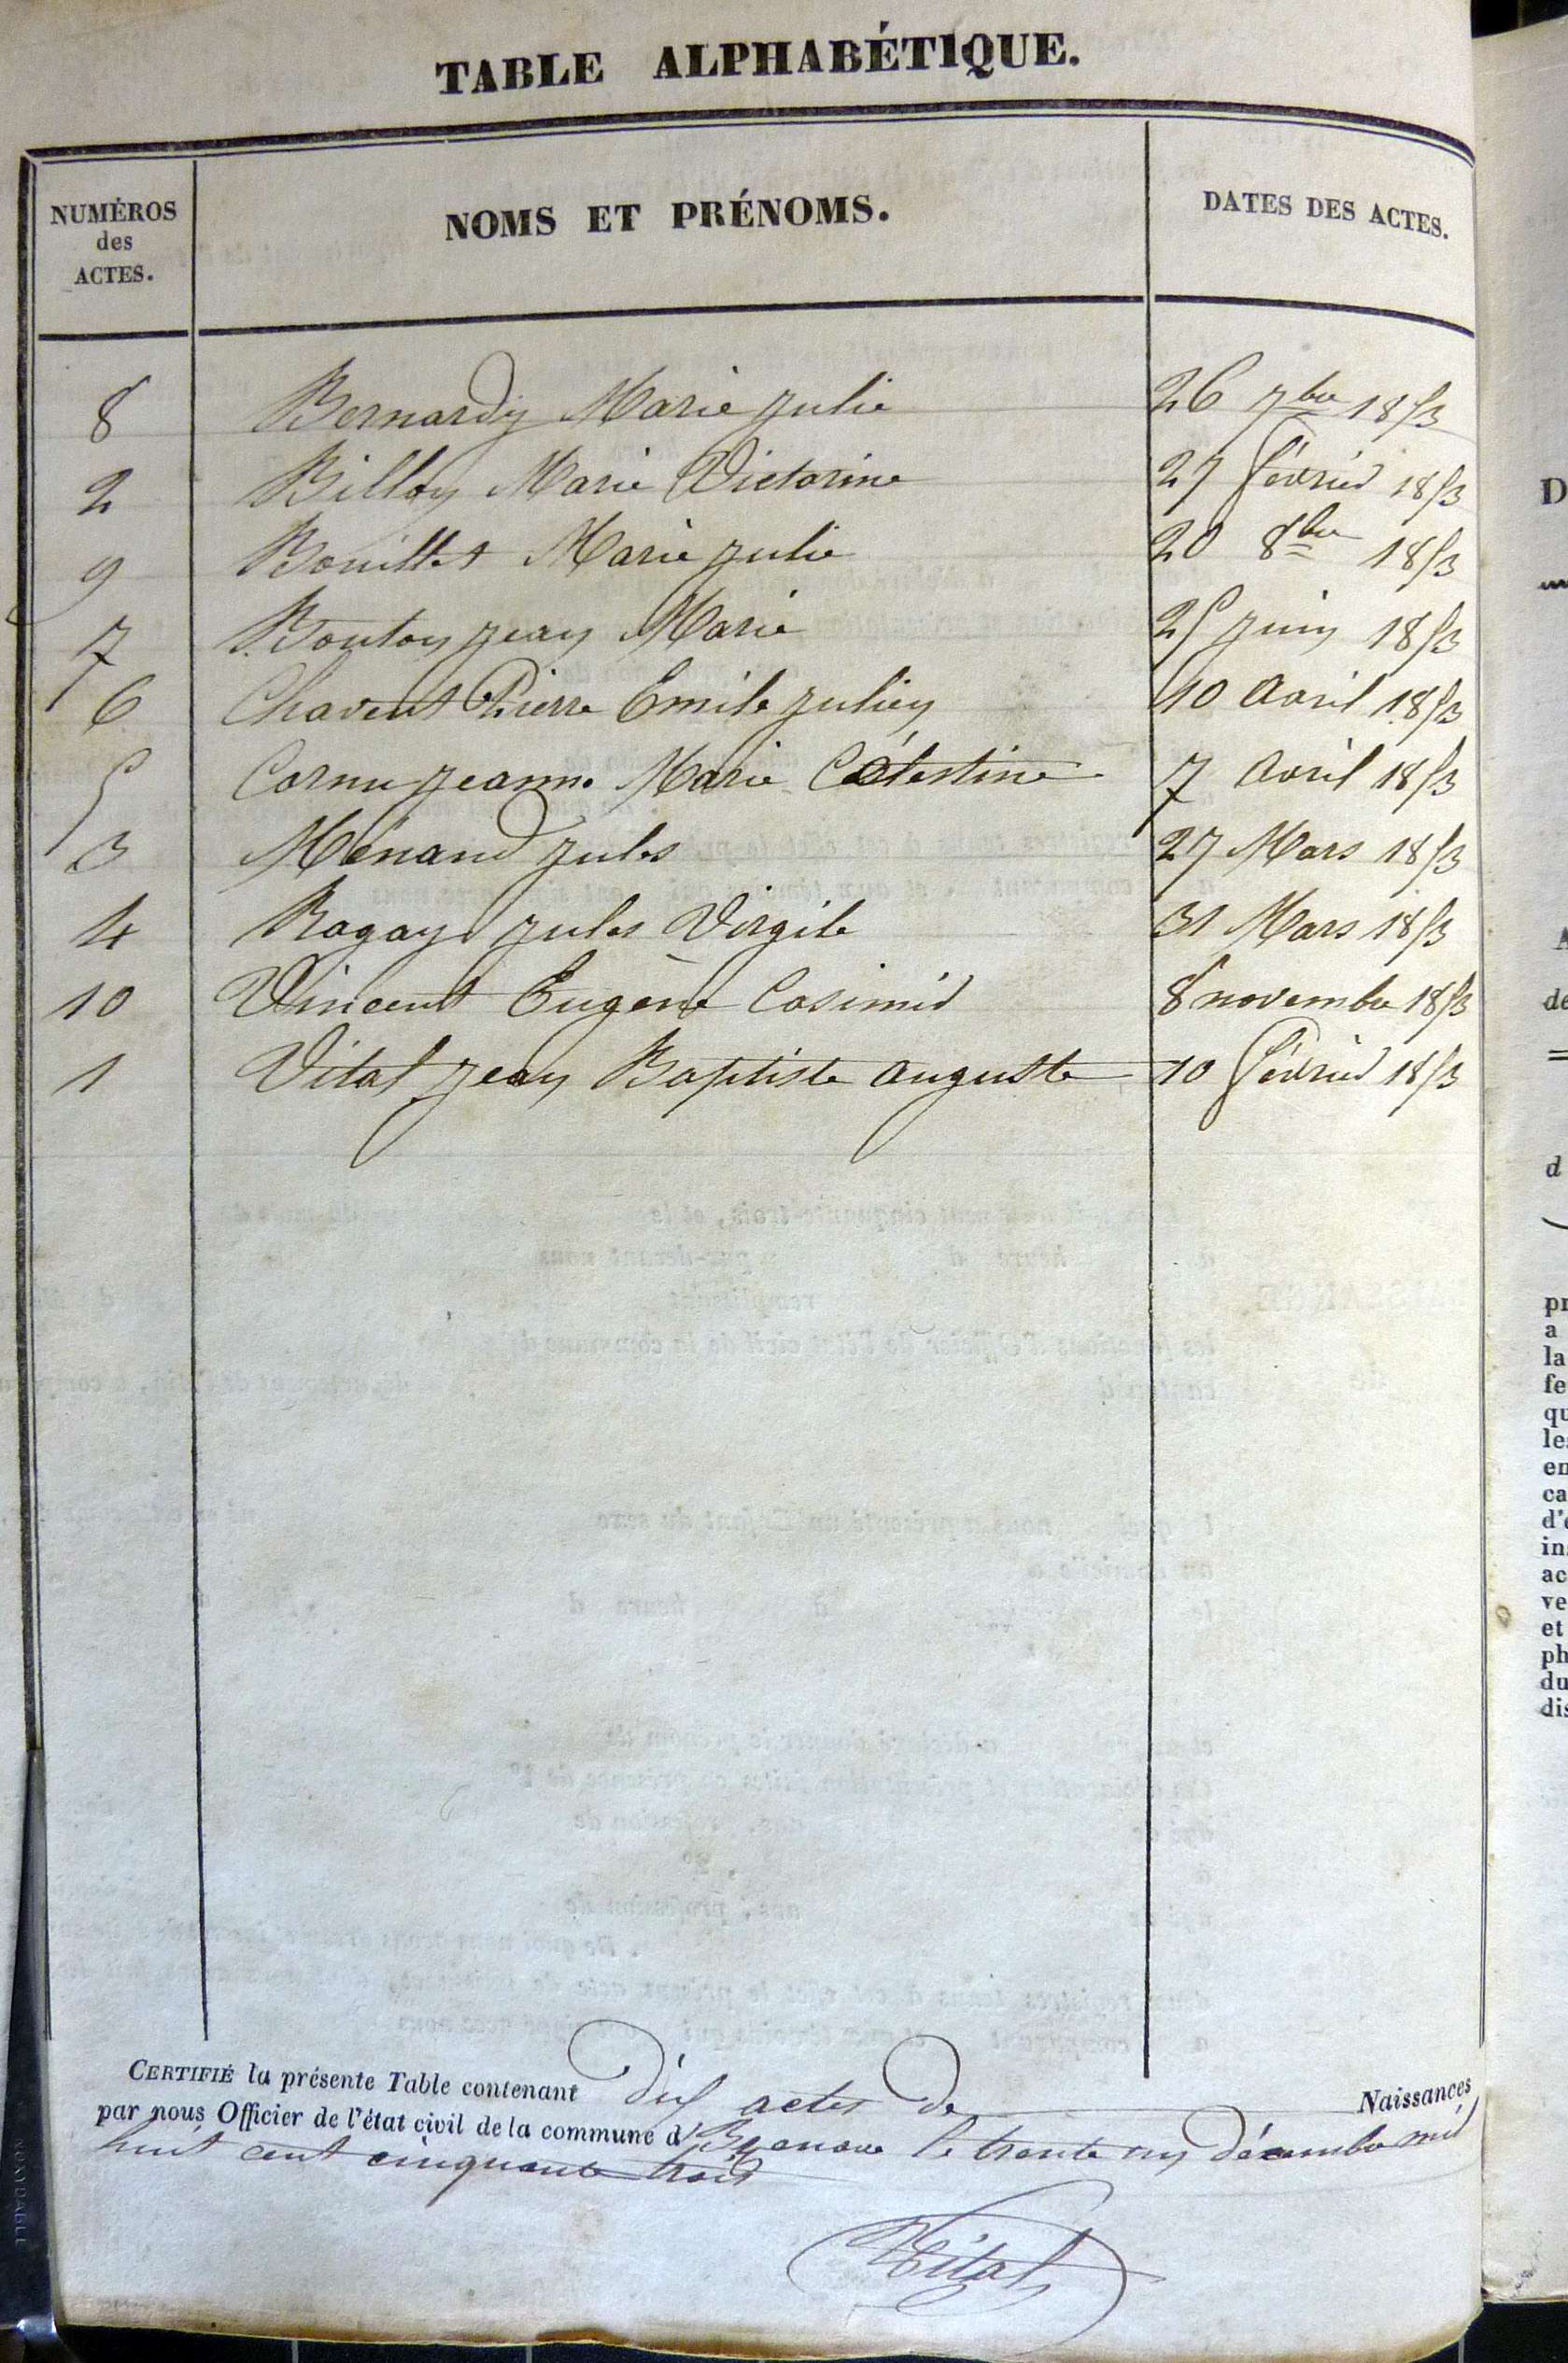 TABLE ALPHABÉTIQUE.
NUMÉROS des ACTES. NOMS ET PRÉNOMS. DATES DES ACTES.
8 Bernardy Marie Julie 26 7bre 1853
2 Billoy Marie Victorine 27 février 1853
9 Bouillet Marie Julie 20 8bre 1853
7 Bouton Jean Marie 25 Juin 1853
6 Chavent Pierre Emile Julien 10 Avril 1853
5 Cornu Jeanne Marie Célestine 7 Avril 1853
3 Ménand Jules 27 Mars 1853
4 Ragay Jules Virgile 31 Mars 1853
10 Vincent Eugène Casimir 8 novembre 1853
1 Vital Jean Baptiste Auguste 10 février 1853
CERTIFIÉ la présente Table contenant dix actes de Naissances
par nous Officier de l'état civil de la commune d le trente un décembre mil
huit cent cinquante trois
Vital
D
de
d
pr
a
la
fe
qu
les
en
ca
d'e
in
ac
ve
et
ph
du
dis